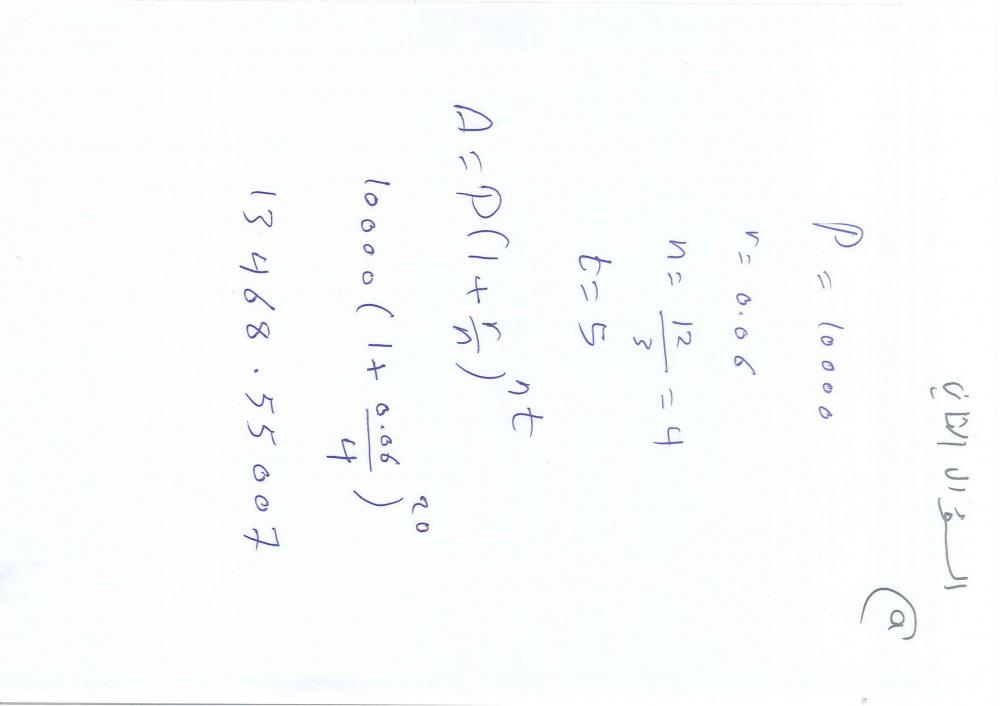 السؤال الثاني
a
P = 10000
r = 0.06
n = 12/3 = 4
t = 5
A = P(1 + r/n)^nt
10000(1 + 0.06/4)^20
13468.55007